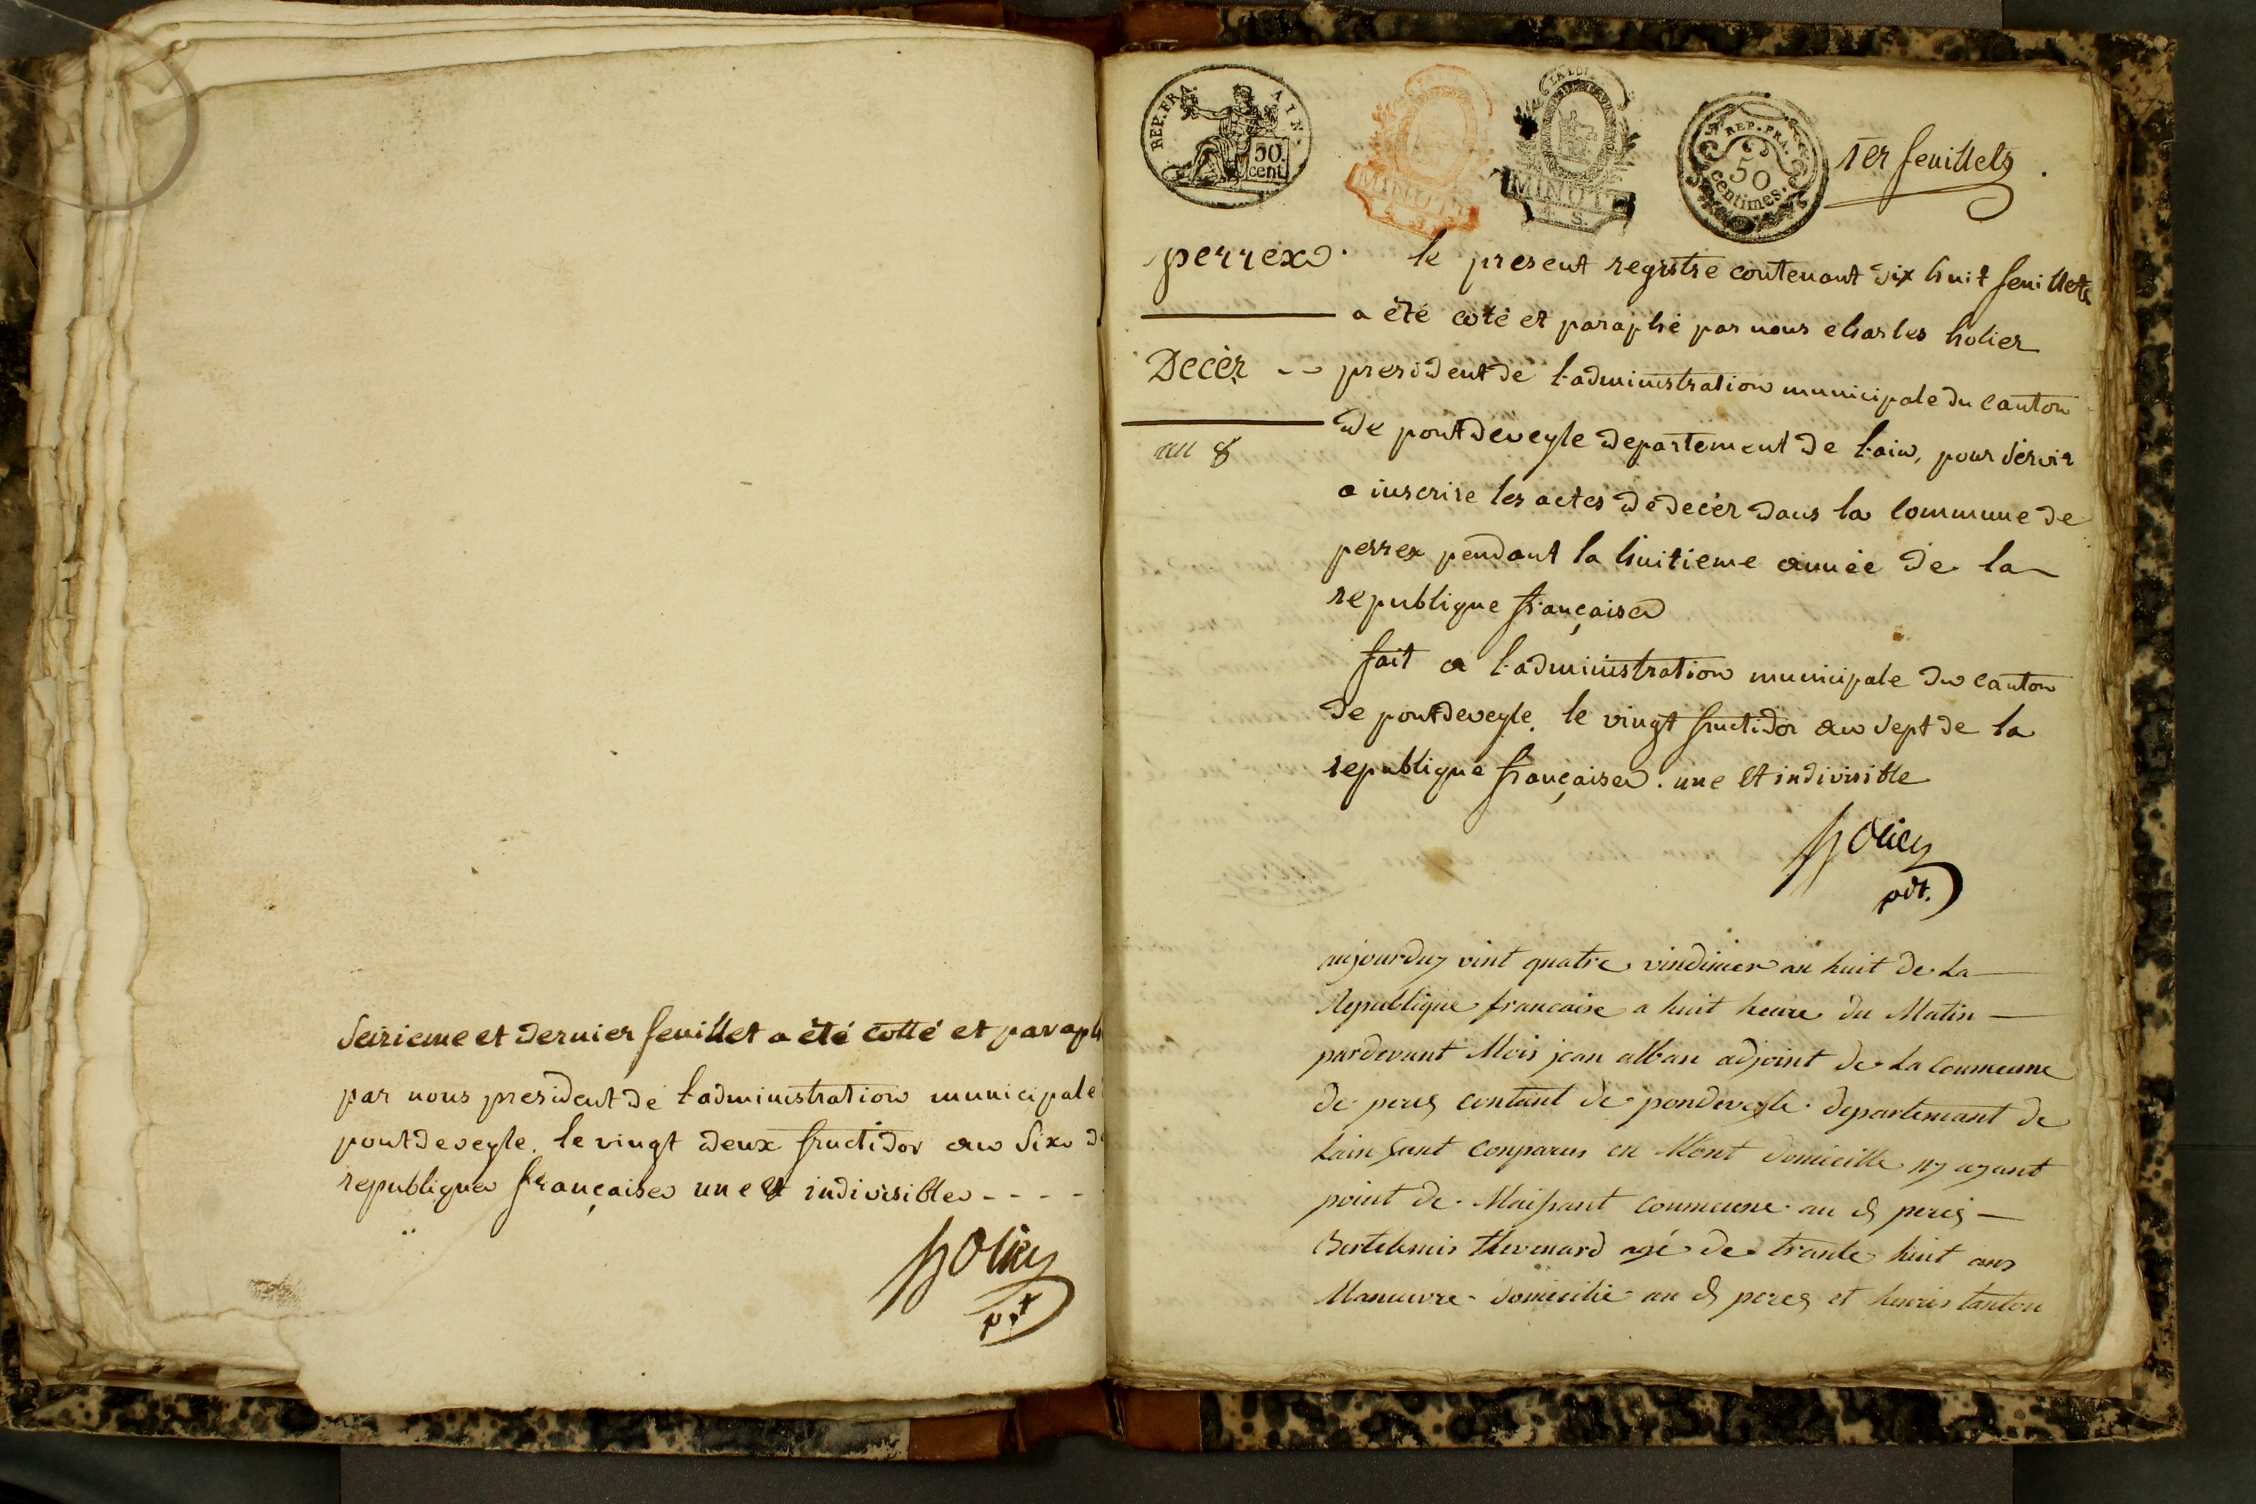 Seizieme et dernier feuillet a été cotté et paraph
par nous president de l'administration municipale
pontdeveyle. le vingt deux fructidor an Six d
republique française une et indivisible - - - -
holier
pt
REP. FRA. AIN.
50 cent
LA LOI
MINUTE
MINUTE
S.
REP. FRA.
50
centimes.
1er feuillets
perrex.
Decèz
an 8
le present registre contenant dix huit feuillets
a été coté et paraphé par nous charles holier
president de l'administration municipale du canton
de pontdeveyle departement de l'ain, pour servir
a inscrire les actes de decéz dans la commune de
perrex pendant la huitieme année de la
republique française
fait a l'administration municipale du canton
de pontdeveyle. le vingt fructidor an sept de la
republique française. une et indivisible
holier
pdt.
aujourduy vint quatre vindimier an huit de la
Republique francaise a huit heure du Matin
pardevant Mois jean alban adjoint de la coumeune
de perez contant de pondeveyle departemant de
lain sont conparus en Mont domicille ny ayant
point de Maisant coumeune au d perez
Bertelemis thevenard agé de trante huit ans
Maneuvre domicilie au d perez et henris tanton